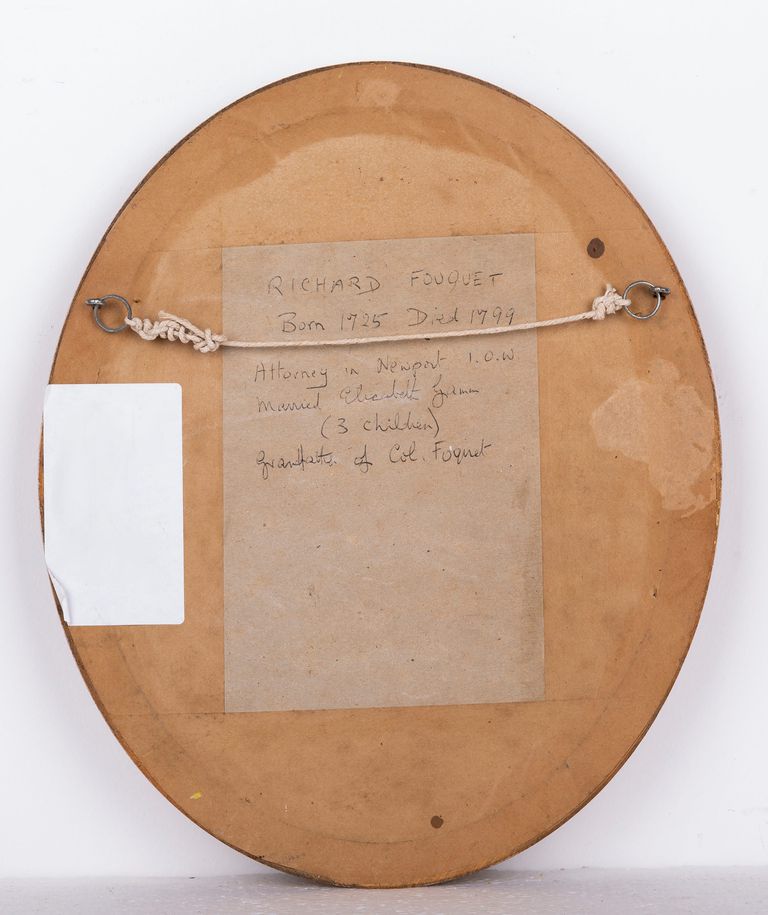 RICHARD FOUQUET
Born 1725 Died 1799
Attorney in Newport I.O.W
Married Elizabeth
(3 children)
Grandfather of Col. Foquet